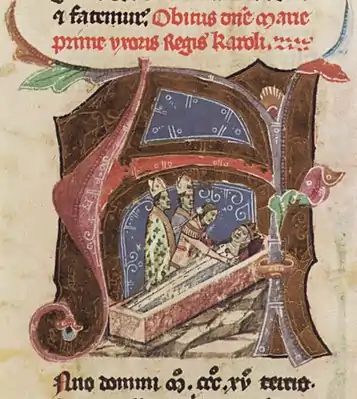 ⁊ fatemur. Obitus dn̄e Marie
prime uxoris Regis Karoli.
Anno domini M. CCC. XV tertio.